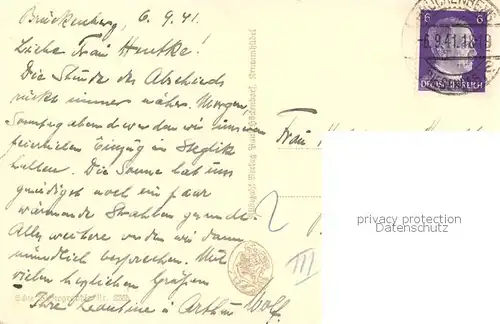 Brückenberg, 6.9.41.
Liebe Frau Hentke!
Die Stunde des Abschieds
rückt immer näher. Morgen,
Sonntag abend werden wir unseren
feierlichen Einzug in Steglitz
halten. Die Sonne hat uns
gnädigst noch ein paar
wärmende Strahlen gesandt.
Alles weitere werden wir dann
mündlich besprechen. Mit
vielen herzlichen Grüßen
Ihre Leontine u. Arthur Wolf.
Frau
III
6 6
DEUTSCHES REICH
-6.9.41.18
privacy protection
Datenschutz